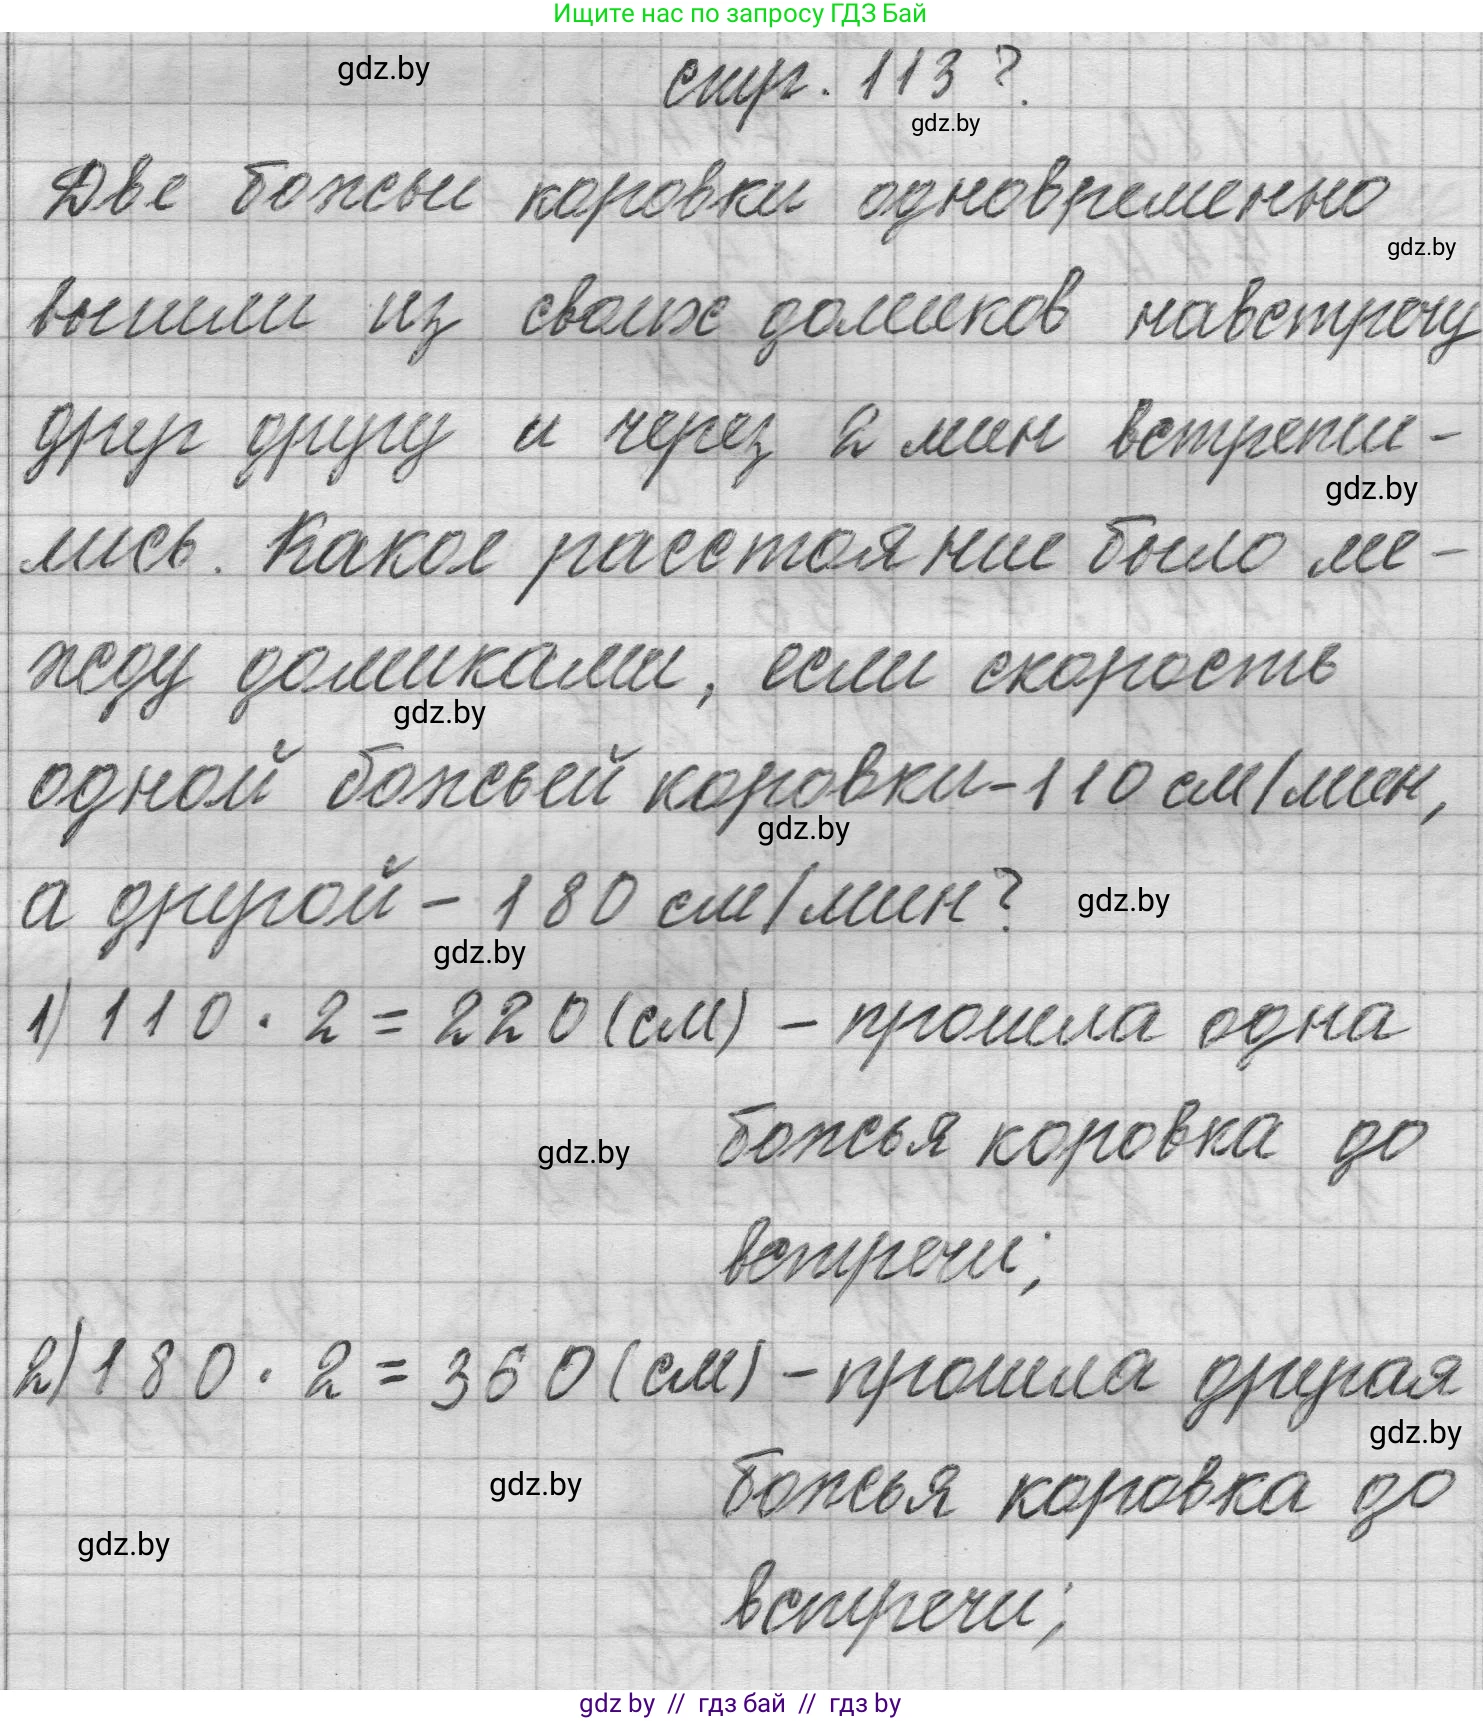 Ищите нас по запросу ГДЗ Бай
gdz.by
стр. 113 ?.
gdz.by
Две божьи коровки одновременно
gdz.by
вышли из своих домиков навстречу
друг другу и через 2 мин встрети-
gdz.by
лись. Какое расстояние было ме-
жду домиками, если скорость
gdz.by
одной божьей коровки - 110 см/мин,
gdz.by
а другой - 180 см/мин?
gdz.by
gdz.by
1) 110 · 2 = 220 (см) - прошла одна
божья коровка до
gdz.by
встречи;
2) 180 · 2 = 360 (см) - прошла другая
gdz.by
божья коровка до
gdz.by
gdz.by
встречи;
gdz by // гдз бай // гдз by